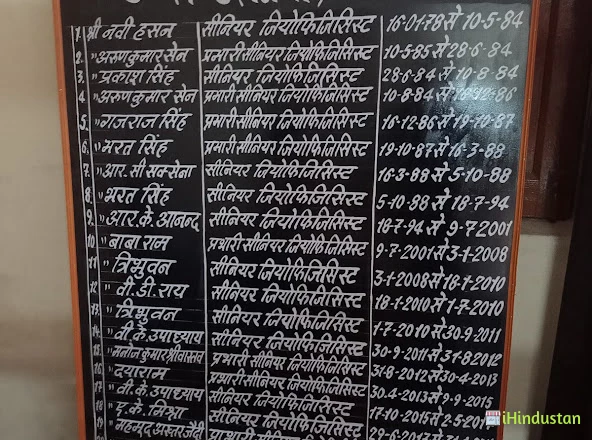 1. श्री नवी हसन सीनियर जियोफिजिसिस्ट 16-01-78 से 10-5-84
2. " अरुण कुमार सेन प्रभारी सीनियर जियोफिजिसिस्ट 10-5-85 से 28-6-84
3. " प्रकाश सिंह सीनियर जियोफिजिसिस्ट 28-6-84 से 10-8-84
4. " अरुण कुमार सेन प्रभारी सीनियर जियोफिजिसिस्ट 10-8-84 से 16-12-86
5. " गजराज सिंह प्रभारी सीनियर जियोफिजिसिस्ट 16-12-86 से 19-10-87
6. " भरत सिंह प्रभारी सीनियर जियोफिजिसिस्ट 19-10-87 से 16-3-88
7. " आर.सी सक्सेना सीनियर जियोफिजिसिस्ट 16-3-88 से 5-10-88
8. " भरत सिंह सीनियर जियोफिजिसिस्ट 5-10-88 से 18-7-94
9. " आर.के. आनन्द सीनियर जियोफिजिसिस्ट 18-7-94 से 9-7-2001
10. " बाबा राम प्रभारी सीनियर जियोफिजिसिस्ट 9-7-2001 से 3-1-2008
11. " त्रिभुवन सीनियर जियोफिजिसिस्ट 3-1-2008 से 18-1-2010
12. " वी.डी. राय सीनियर जियोफिजिसिस्ट 18-1-2010 से 1-7-2010
13. " त्रिभुवन सीनियर जियोफिजिसिस्ट 1-7-2010 से 30-9-2011
14. " वी.के. उपाध्याय सीनियर जियोफिजिसिस्ट 30-9-2011 से 31-8-2012
15. " मनोज कुमार श्रीवास्तव प्रभारी सीनियर जियोफिजिसिस्ट 31-8-2012 से 30-4-2013
16. " दयाराम प्रभारी सीनियर जियोफिजिसिस्ट 30-4-2013 से 9-9-2015
17. " वी.के. उपाध्याय सीनियर जियोफिजिसिस्ट 17-10-2015 से 2-5-
18. " ए.के. मिश्रा सीनियर जियोफिजिसिस्ट 29-6-
19. " महमूद सीनियर
iHindustan